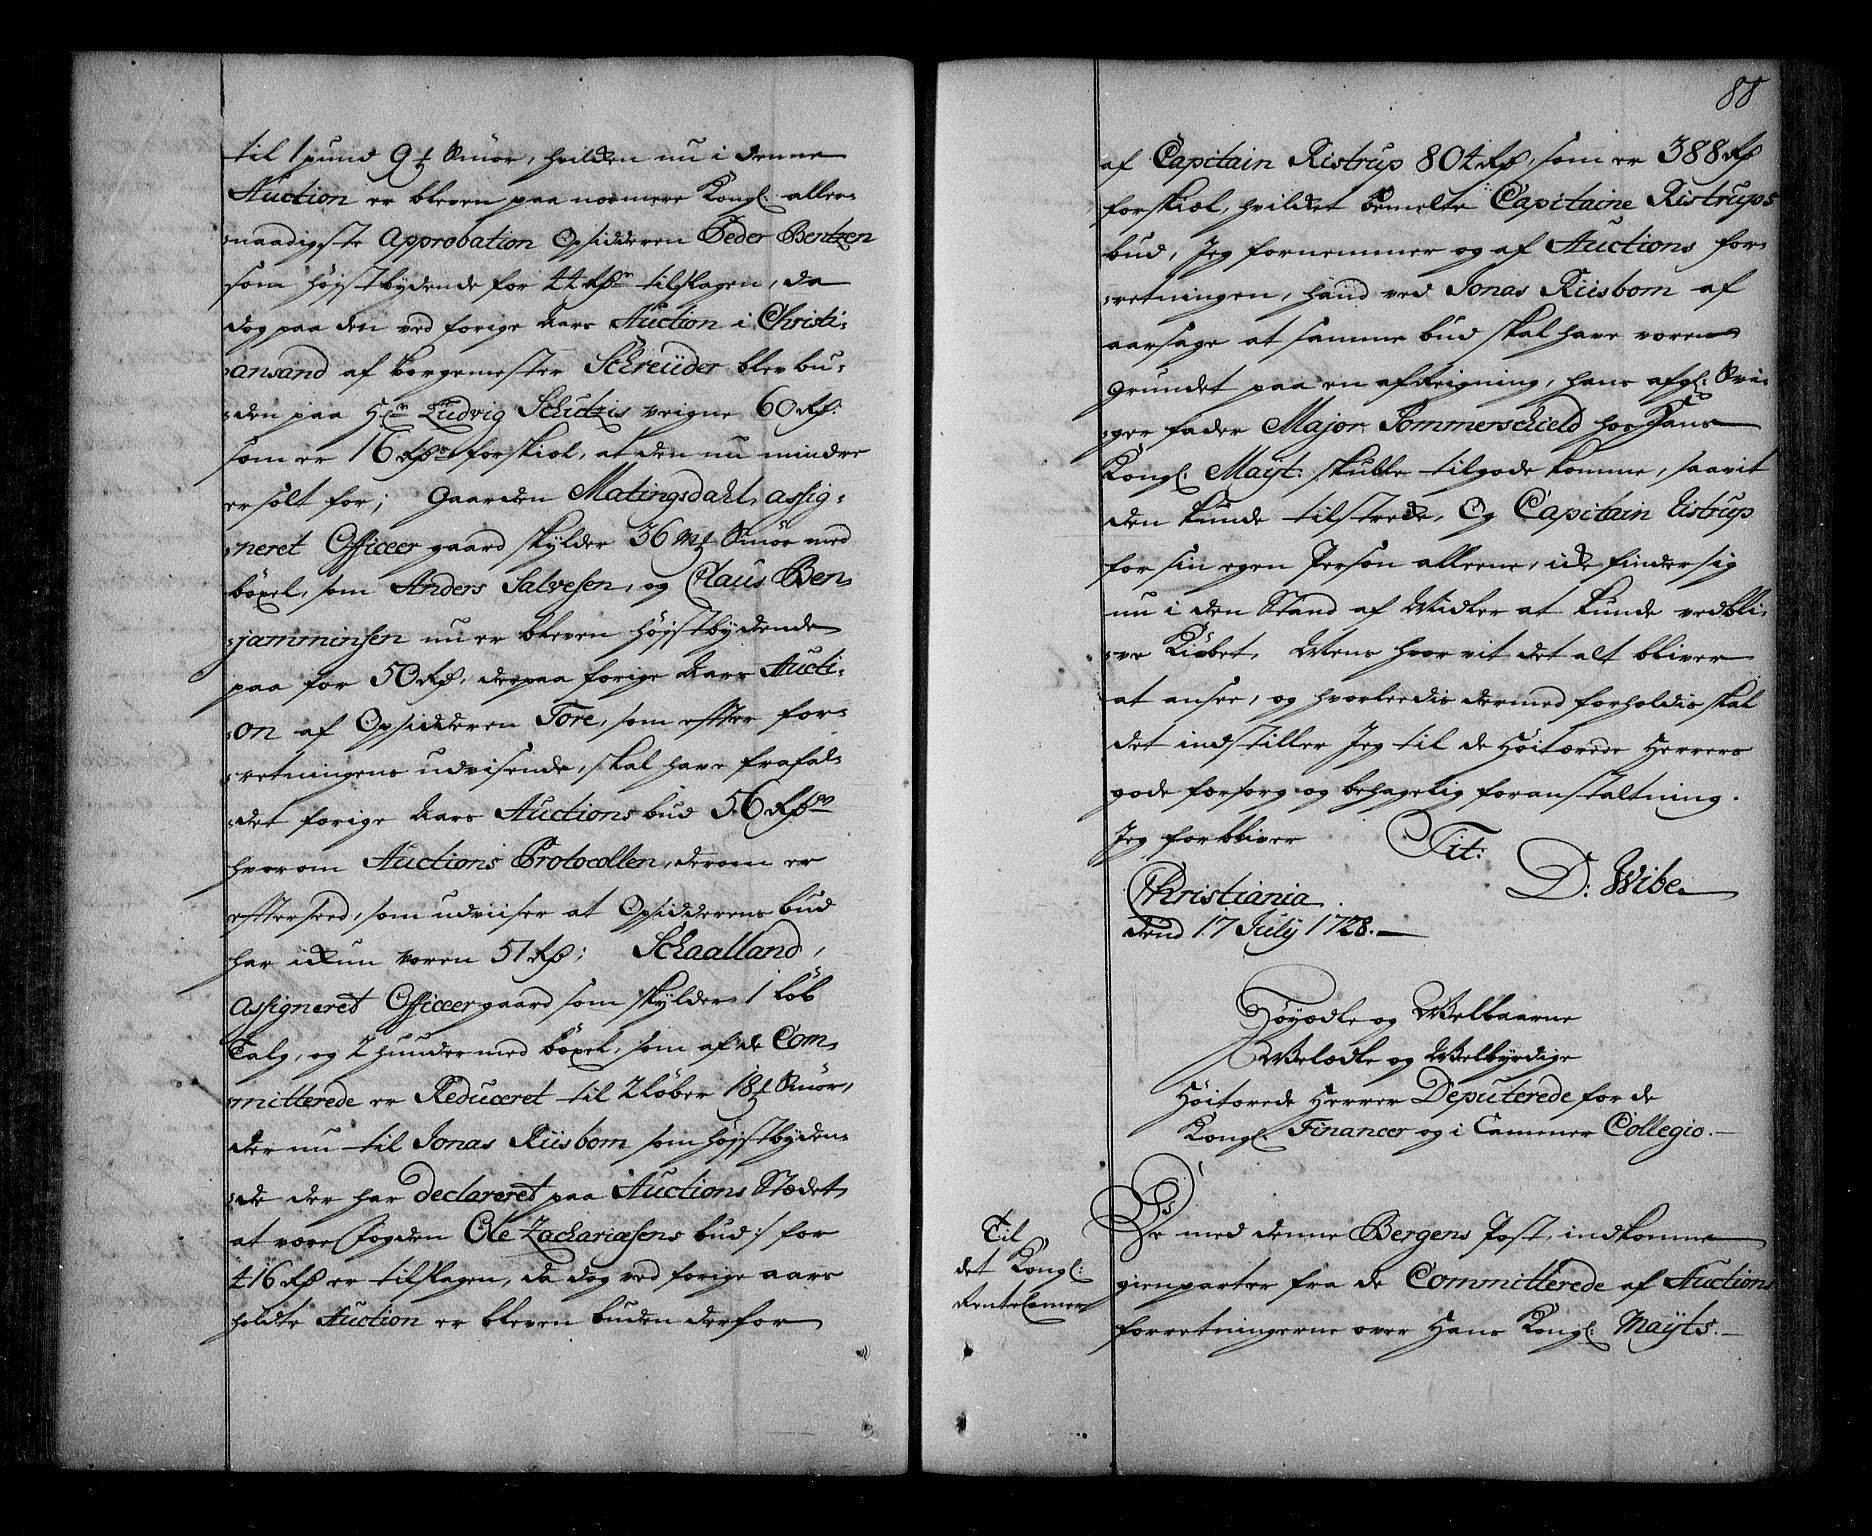 til 1 pund 9 ℔ Smör, hvilken nu i denne
Auction er bleven paa nærmere Kongl: aller¬
naadigste Approbation Opsidderen Peder Bentzen
som höystbydende for 44 Rdr tilslagen, da
dog paa den ved forige Aars Auction i Christi¬
ansand af Borgemester Schreüder blev bu¬
den paa Hr Ludvig Schutzis veigne 60 Rdr:
som er 16 Rdrs forskiæl, at den nu mindre
er solt for; Gaarden Matingsdahl, assig¬
neret Officeer gaard skylder 36 ℔ Smör med
böxel, som Anders Salvesen, og Claus Ben¬
jamminsen nu er bleven höystbydende
paa for 50 Rdr, derpaa forige Aars Aucti¬
on af Opsidderen Tore, som effter for¬
retningens udvisende, skal have frafal¬
det forige Aars Auctions bud 56 Rdr
hvorom Auctions Protocollen, derom er
effterseed, som udviiser at Opsidderens bud
har ickun voren 51 Rdr; Schaalland,
assigneret Officeer gaard som skylder 1 Löb
Talg, og 2 hunder med böxel, som af de Com¬
mitterede er Reduceret til 2 Löber 18 ℔ Smör,
der nu til Jonas Riisbom som höystbyden¬
de der har declareret paa Auctions Stædet
at være Fogden Ole Zachariæsens bud :/ for
416 Rdr er tilslagen, da dog ved forige aars
holdte Auction er bleven buden derfor
88
af Capitain Ristrup 804 Rdr, som er 388 Rdr
forskiæl, hvilcket bemelte Capitaine Ristrups
bud, Jeg fornemmer og af Auctions for¬
retningen, hand ved Jonas Riisbom af
aarsage at samme bud skal have voren
grundet paa en afreigning, hans afgl: Svi¬
ger fader Major Sommerschield hos Hans
Kongl: Mayt: skulle tilgode komme, saavit
den kunde tilstrecke, Og Capitain Ristrup
for sin egen Person alleene, icke finder sig
nu i den Stand af Midler at kunde vedbli¬
ve Kiöbet, Mens hvor vit det alt bliver
at ansee, og hvorleedis dermed forholdis skal
det indstiller Jeg til de Höitærede Herrers
gode forsorg og behagelig foranstaltning.
Jeg forbliver Tit:
D: Wibe
Christiania
dend 17 July 1728.
Höyædle og Welbaarne
Welædle og Welbyrdige
Höitærede Herrer Deputerede for de
Kongl: Financer og i Cammer Collegio.
Til
det Kongl:
RenteCamer
De med denne Bergens Post, indkomne
gienparter fra de Committerede af Auctions
forretningerne over Hans Kongl: Mayts.